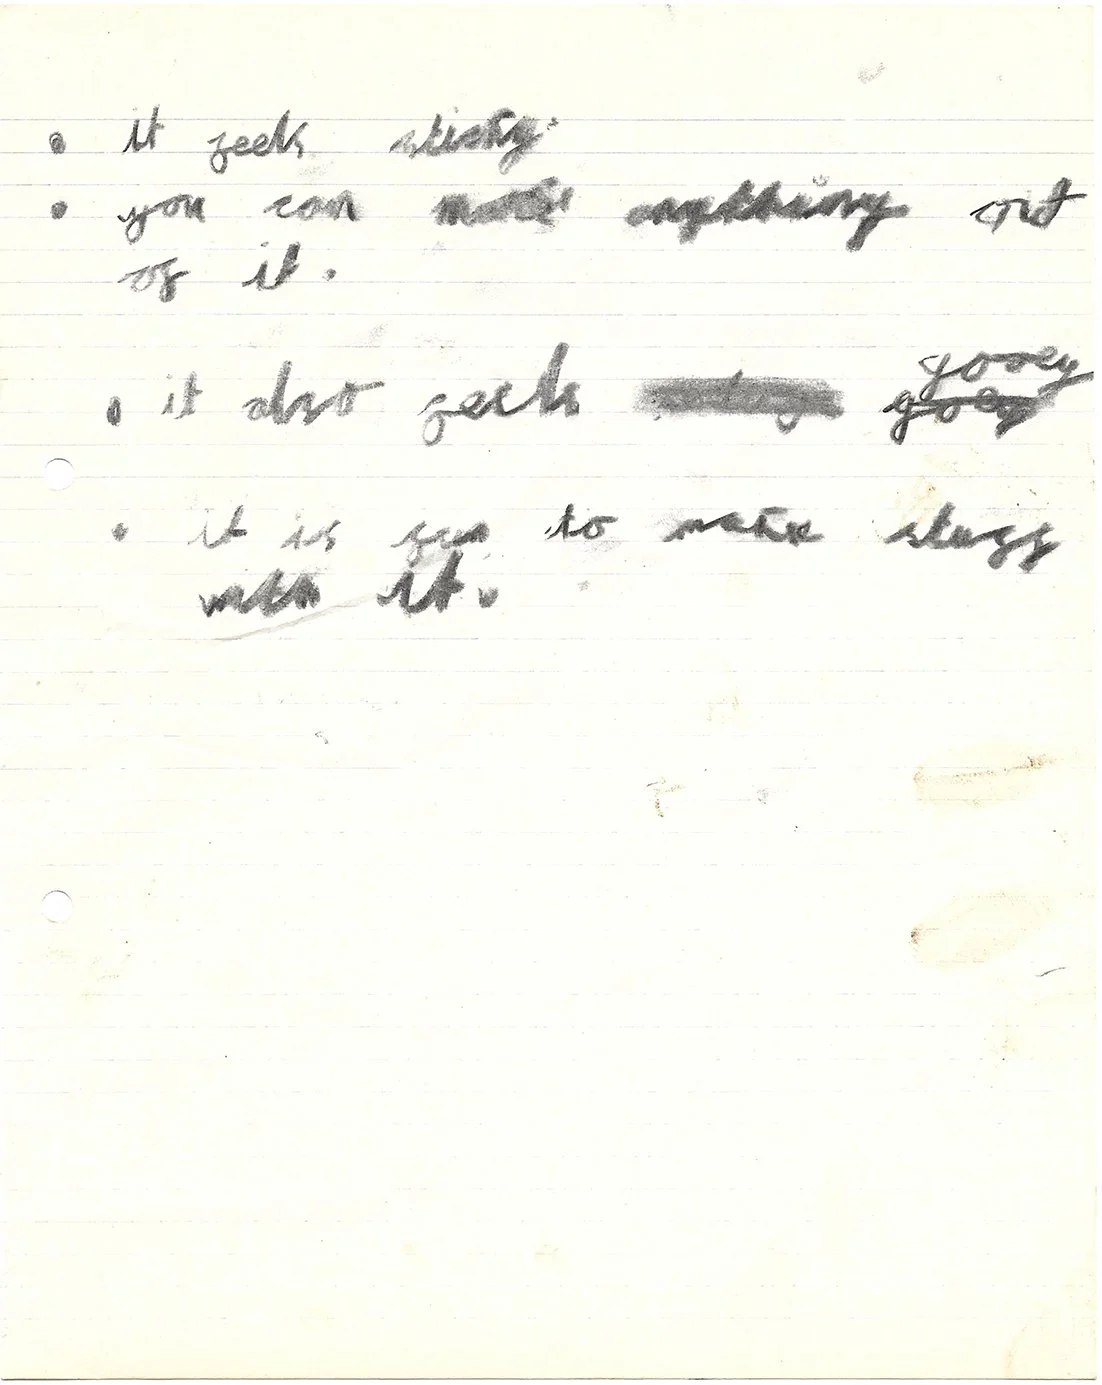 • it feels sticky.
• you can make anything out
of it.
• it also feels gooey goey
• it is fun to make stuff
with it.